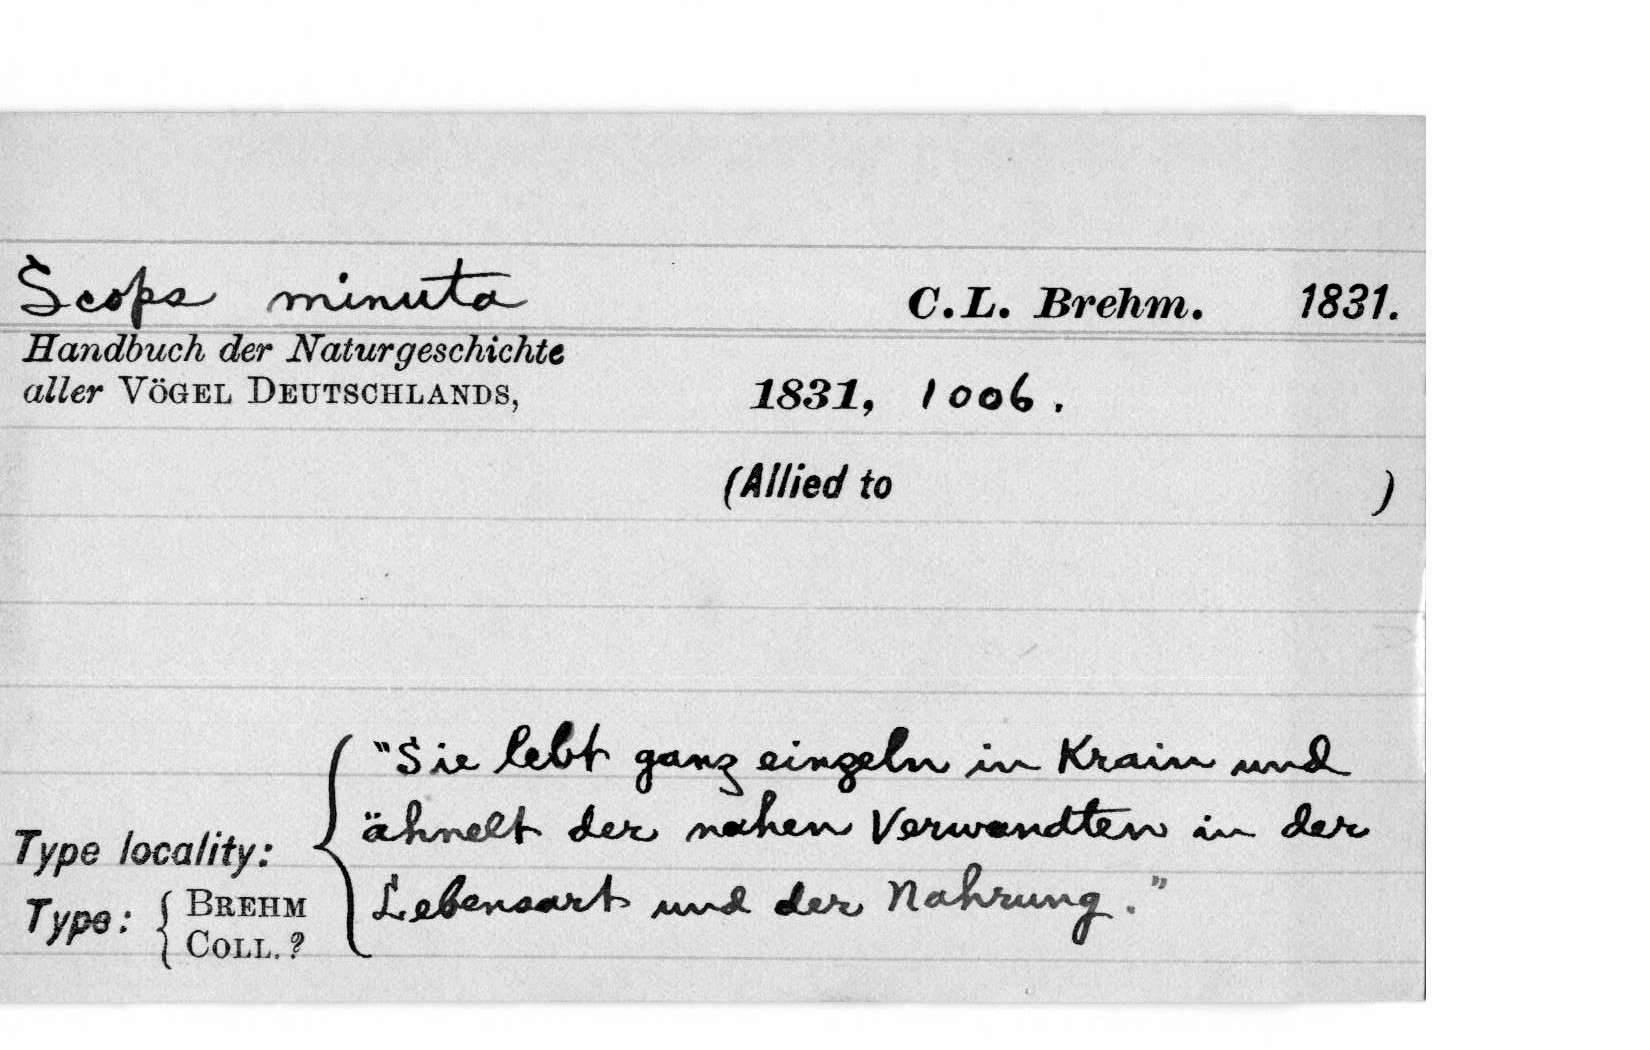 Scops minuta C. L. Brehm. 1831.
Handbuch der Naturgeschichte
aller VÖGEL DEUTSCHLANDS, 1831, 1006.
(Allied to )
"Sie lebt ganz einzeln in Krain und
ähnelt der nahen Verwandten in der
Type locality:
Lebensart und der Nahrung."
Type: { BREHM
COLL. ?